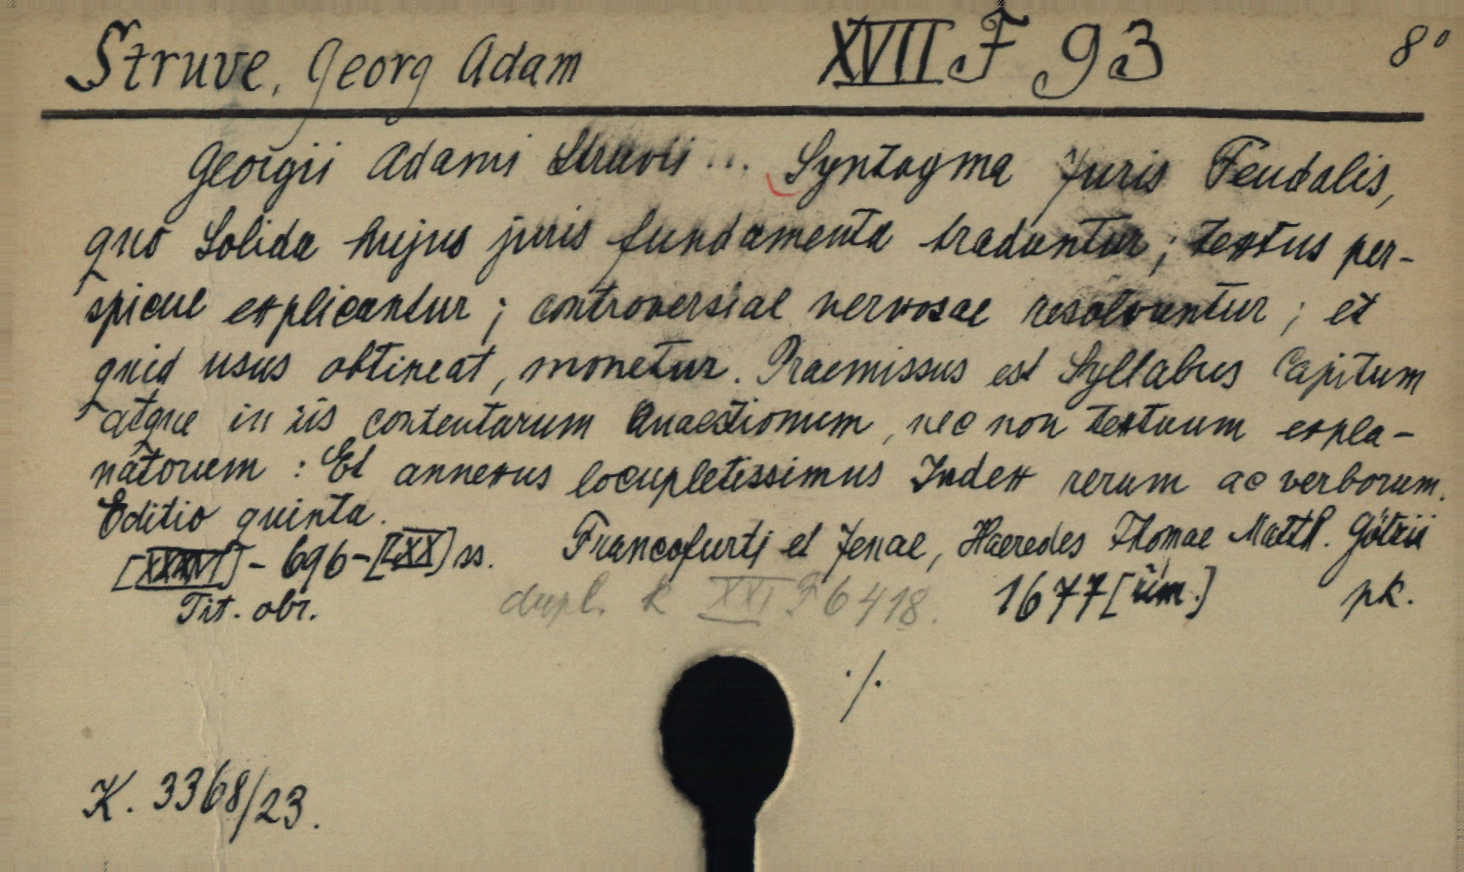 Struve, Georg Adam XVII F 93 8°
Georgii Adami Struvii ... Syntagma Juris Feudalis,
quo Solida hujus juris fundamenta traduntur; textus per-
spicue explicantur; controversiae nervosae resolvuntur; et
quid usus obtineat, monetur. Praemissus est Syllabus Capitum
atque in iis contentarum Quaestionum, nec non textuum expla-
natorum: Et annexus locupletissimus Index rerum ac verborum.
Editio quinta.
Francofurti et Jenae, Haeredes Thomae Matth. Götzii
[XXXVI] - 696 - [LXX] ss.
Tit. obr. dupl. k XXI F 6418. 1677 [rim.] pk.
./.
K. 3368/23.